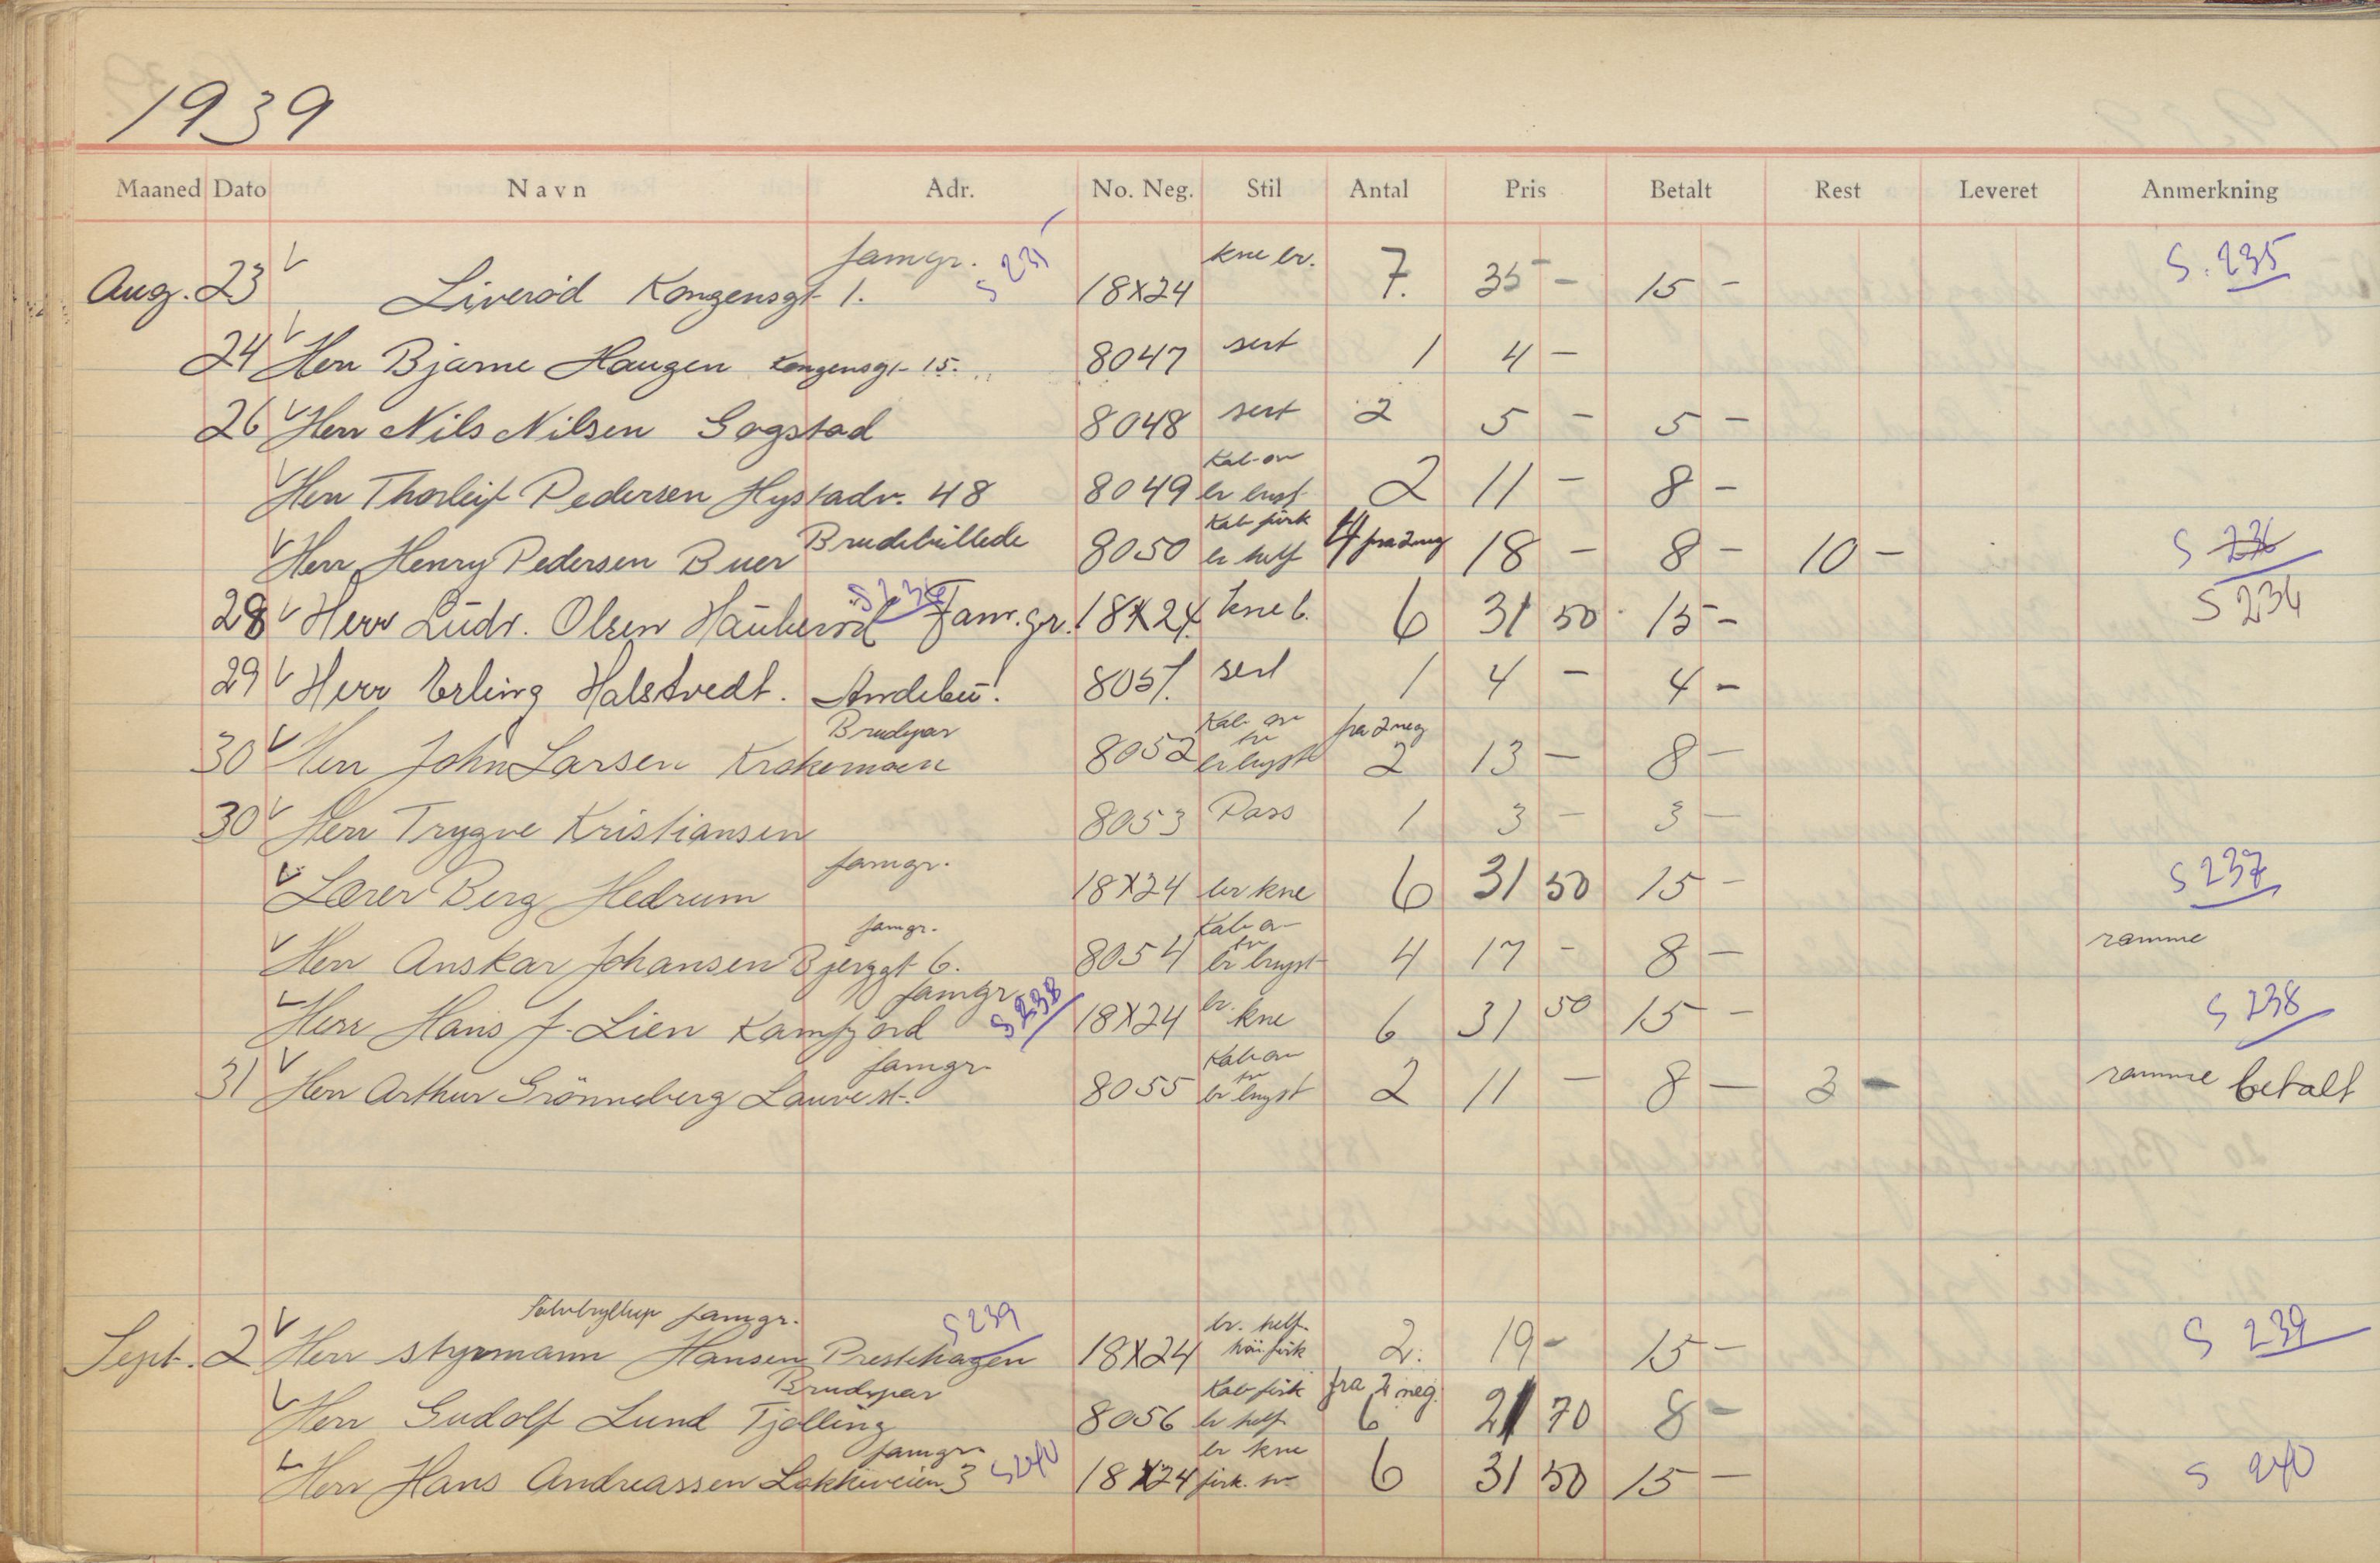 1939
Maaned Dato Navn Adr. No. Neg. Stil Antal Pris Betalt Rest Leveret Anmerkning
famgr. kne br.
Aug. 23 Liveröd Kongensgt 1. S 235 18X24 7. 35 — 15 — S. 235
24 Herr Bjarne Haugen Kongensgt 15. 8047 sert 1 4 —
26 Herr Nils Nilsen Gogstad 8048 sert 2 5 — 5 —
Kab
Herr Thorleif Pedersen Hystadv. 48 8049 br 2 11 — 8 —
Brudebillede Kab firk
Herr Henry Pedersen Buer 8050 br helf 4 fra 2 neg 18 — 8 — 10 — S 236
28 Herr Ludv. Olsen Fam.gr. 18X24 kne b. 6 31 50 15 — S 236
29 Herr Erling Halstvedt. Andebu! 8051. sert 1 4 — 4 —
Brudepar Kab fra 2 neg
30 Herr John Larsen Krokemoen 8052 br bryst 2 13 — 8 —
30 Herr Trygve Kristiansen 8053 Pass 1 3 — 3 —
famgr.
Lærer Berg Hedrum 18X24 br kne 6 31 50 15 — S 237
famgr. Kab
Herr Anskar Johansen Bjerggt 6. 8054 br bryst 4 17 — 8 — ramme
famgr
Herr Hans J. Lien Kamfjord S 238 18X24 br. kne 6 31 50 15 — S 238
famgr. Kab
31 Herr Arthur Grönneberg Lauve st. 8055 br bryst 2 11 — 8 — 3 — ramme betalt
Sölvbryllup famgr. S 239 br. helf.
Sept. 2 Herr styrmann Hansen Prestehagen 18X24 firk 2. 19 — 15 — S 239
Brudepar Kab firk fra 2 neg.
Herr Gudolf Lund Tjølling 8056 br helf 6 21 70 8 —
famgr. br kne
Herr Hans Andreassen Løkkeveien 3 S 240 18X24 firk. 6 31 50 15 — S 240